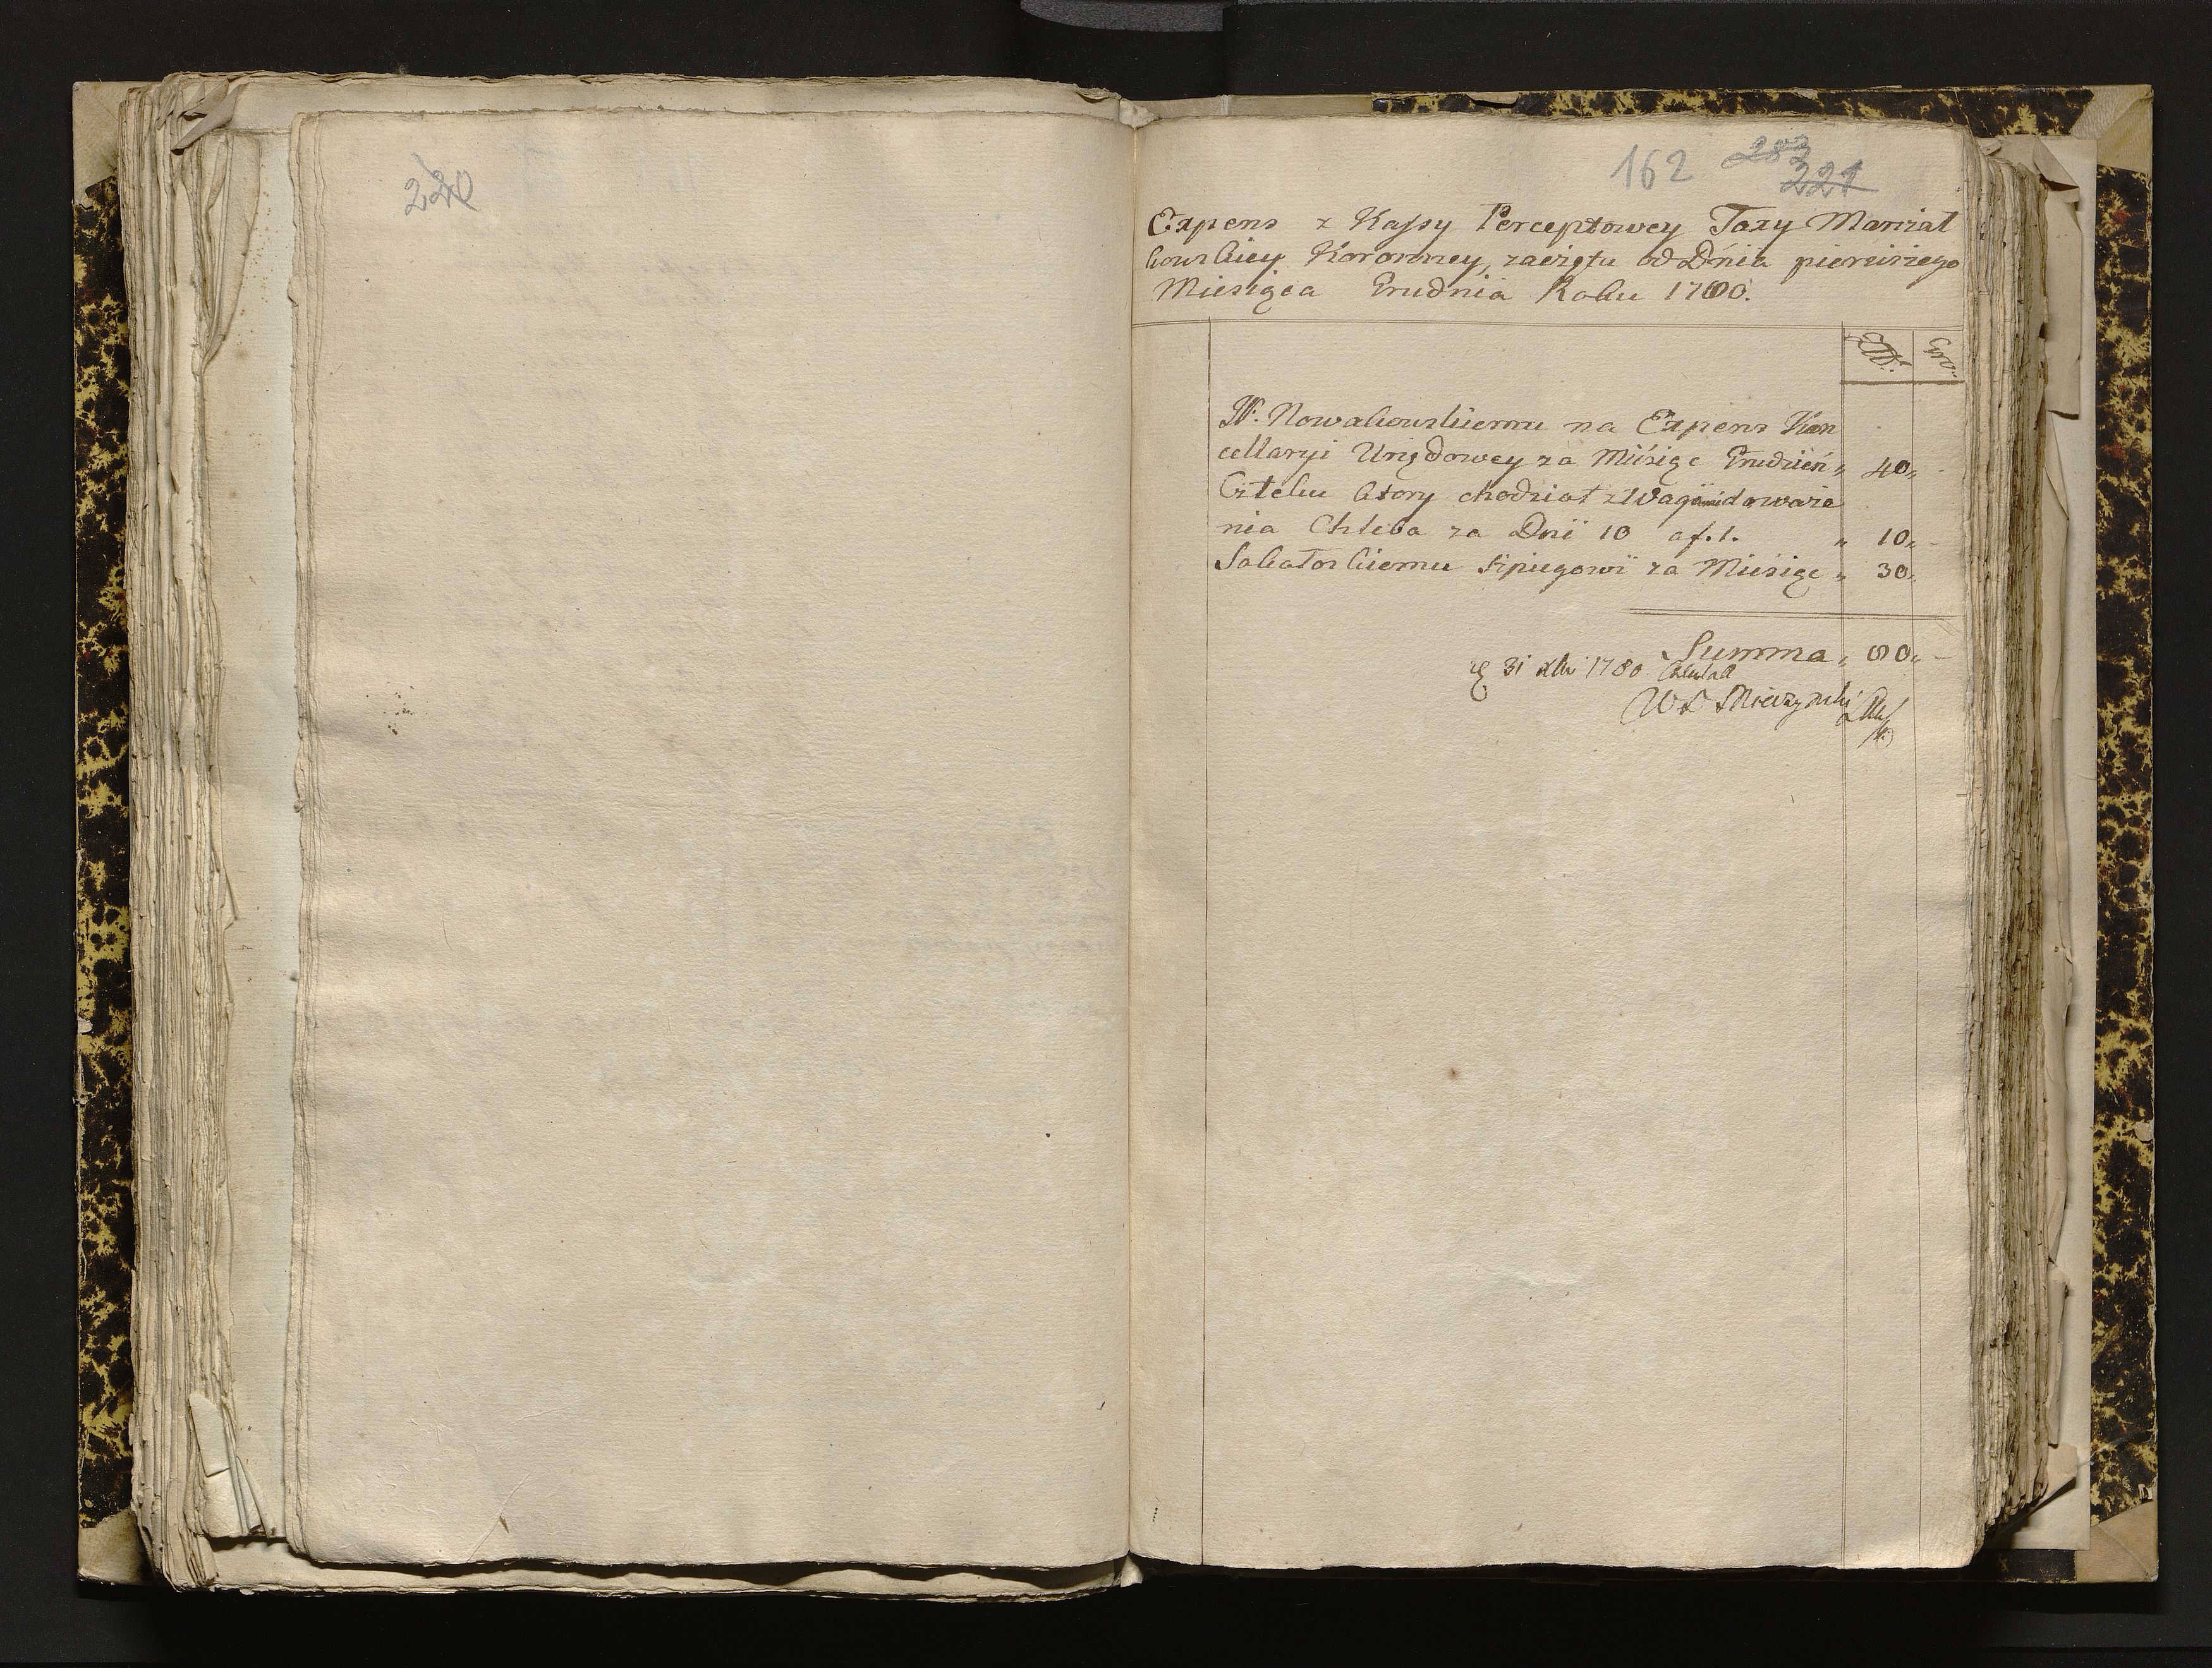 220
162 282
221
Expens z Kassy Perceptowey Taxy Marszał
kowskiey Koronney, zacięta od Dnia pierwszego
Miesiąca Grudnia Roku 1780.
Złł. Gro.
JP. Nowakowskiemu na Expens Kan
cellaryi Urzędowey za Miesiąc Grudzień „ 40 „ -
Człeku ktory chodził z Wagami do waże
nia Chleba za Dni 10 a f. 1. „ 10 „ -
Sakatorskiemu Szpiegowi za Miesiąc „ 30 „
Summa „ 80 „ -
31 1780